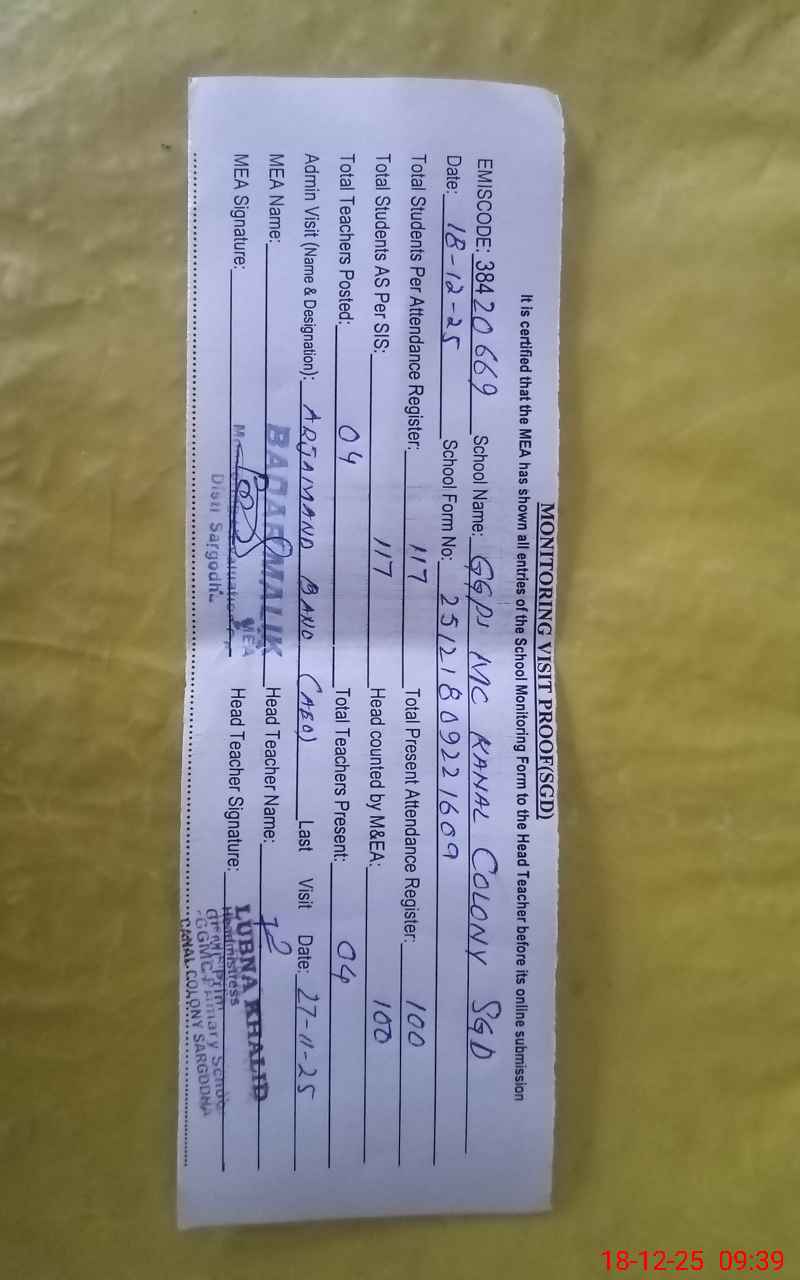 MONITORING VISIT PROOF(SGD)
It is certified that the MEA has shown all entries of the School Monitoring Form to the Head Teacher before its online submission
EMISCODE: 38420669 School Name: GGPS MC KANAL COLONY SGD
Date: 18-12-25 School Form No: 25121809221609
Total Students Per Attendance Register: 117 Total Present Attendance Register: 100
Total Students AS Per SIS: 117 Head counted by M&EA: 100
Total Teachers Posted: 04 Total Teachers Present: 04
Admin Visit (Name & Designation): ARJAMAND BANO (AEO) Last Visit Date: 27-11-25
MEA Name: MALIK Head Teacher Name: LUBNA KHALID
MEA
MEA Signature: Head Teacher Signature: Headmistress
Distt Sargodha
CANAL COLONY SARGODHA
18-12-25 09:39